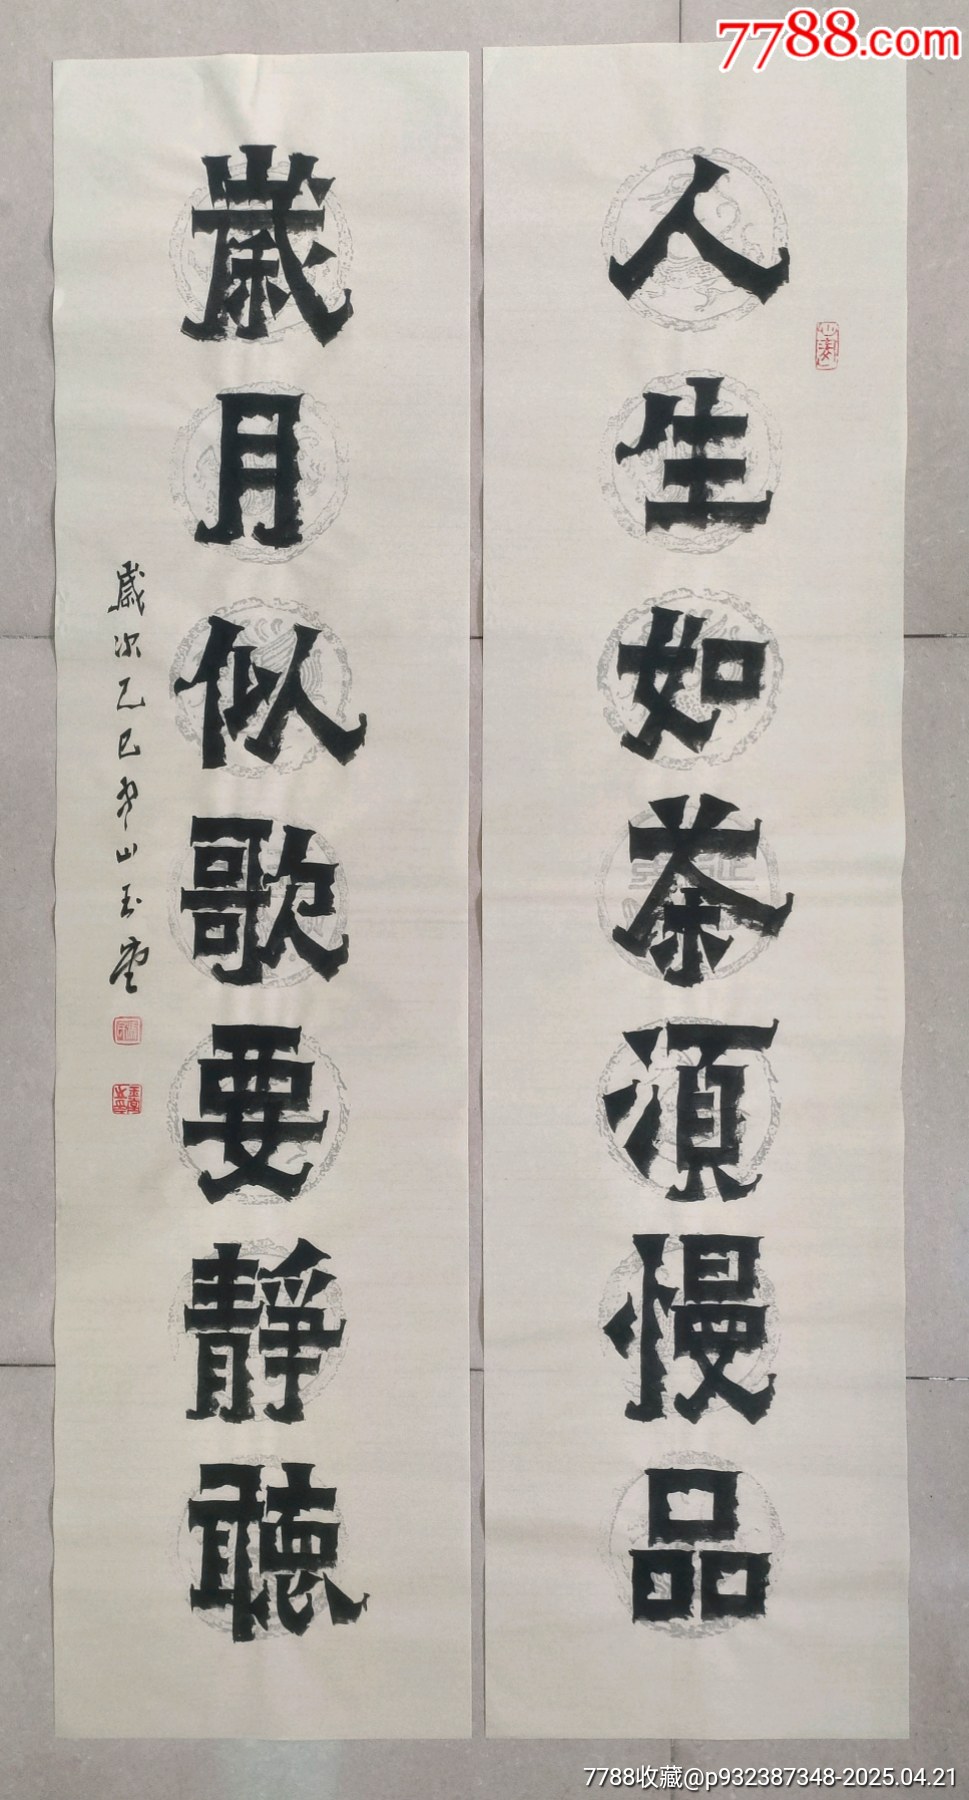 7788.com
人生如茶須慢品
歲月似歌要靜聽
歲次乙巳
山玉堂
7788收藏@p932387348-2025.04.21